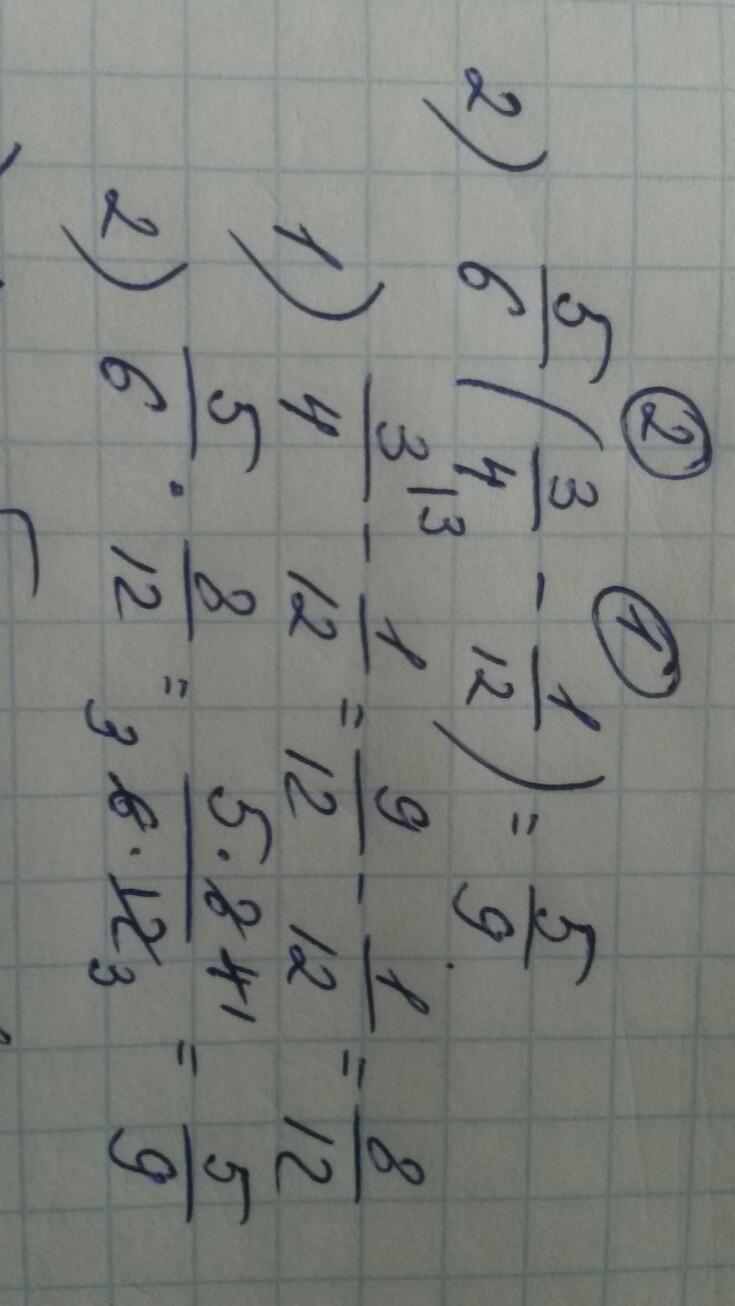 ② ①
2) 5/6 (3/4 - 1/12) = 5/9.
1) 3/4 |3 - 1/12 = 9/12 - 1/12 = 8/12
2) 5/6 · 8/12 = 5·8 4 1/3 6·12 3 = 5/9